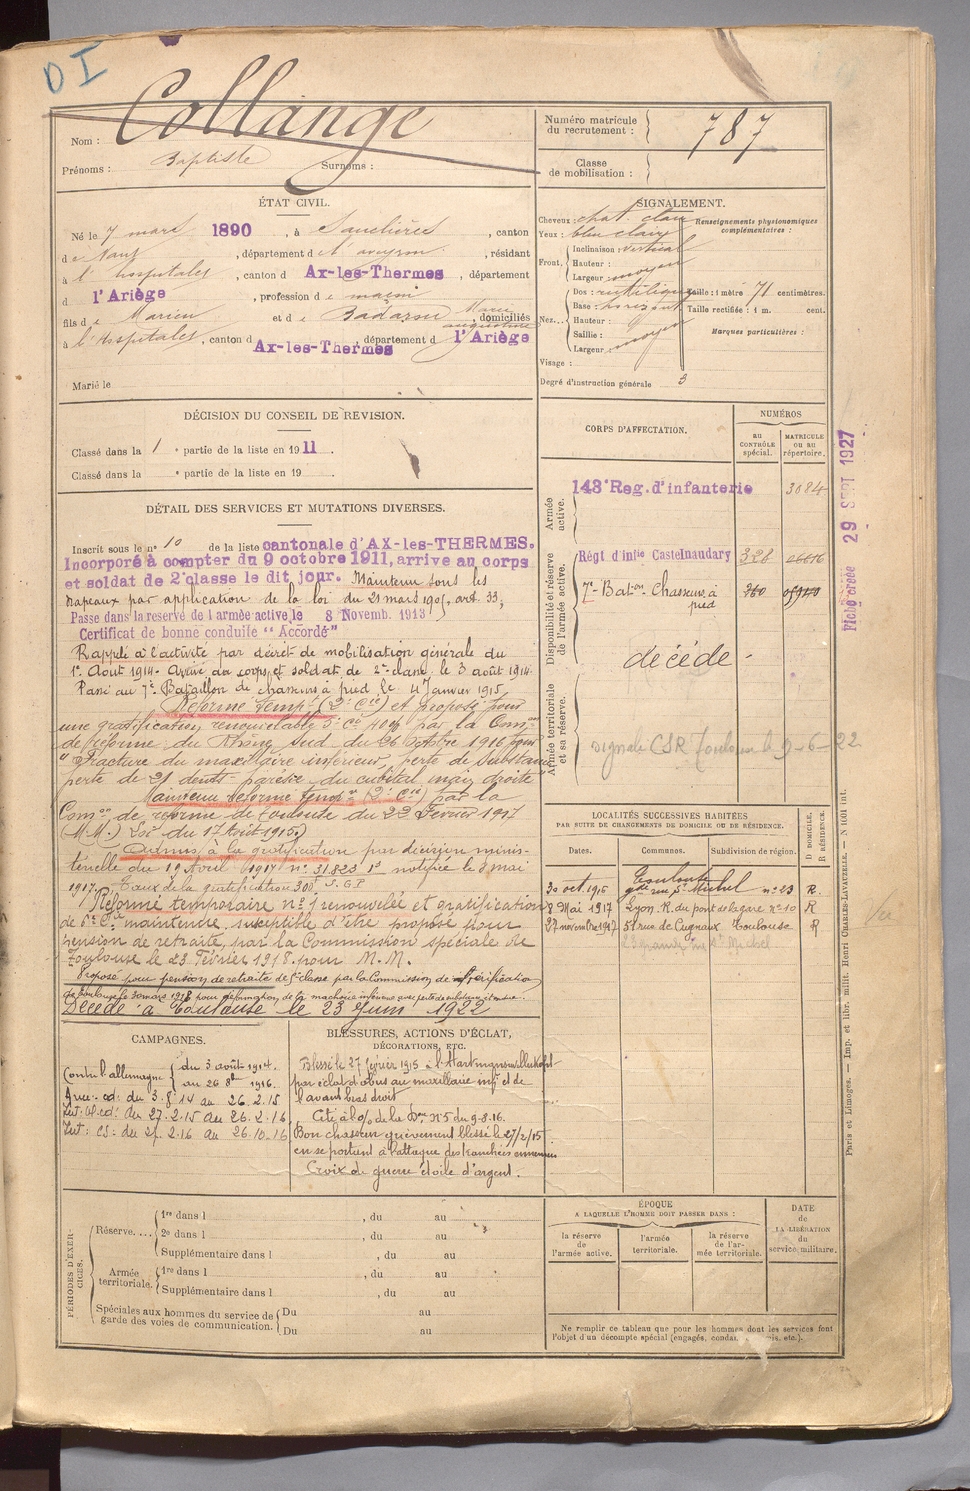 DI
Nom : Collange
Prénoms : Baptiste Surnoms :
Numéro matricule du recrutement : 787
Classe de mobilisation :
ÉTAT CIVIL.
Né le 7 mars 1890, à Sauclières, canton
de Nant, département de l'aveyron, résidant
à l'hospitalet, canton d Ax-les-Thermes, département
d l'Ariège, profession de maçon
fils de Marien et de Badarou Marie augustine, domiciliés
à l'Hospitalet, canton d Ax-les-Thermes, département d l'Ariège
Marié le
SIGNALEMENT.
Cheveux : chat. clair
Yeux : bleu clair
Front, Inclinaison : vertical
Hauteur :
Largeur : moyen
Nez... Dos : rectiligne
Base : horizont
Hauteur :
Saillie :
Largeur : moyen
Visage :
Degré d'instruction générale 3
Renseignements physionomiques complémentaires :
Taille : 1 mètre 71 centimètres.
Taille rectifiée : 1 m. cent.
Marques particulières :
DÉCISION DU CONSEIL DE REVISION.
Classé dans la 1e partie de la liste en 1911.
Classé dans la e partie de la liste en 19
DÉTAIL DES SERVICES ET MUTATIONS DIVERSES.
Inscrit sous le n° 10 de la liste cantonale d'AX-les-THERMES.
Incorporé à compter du 9 octobre 1911, arrive au corps
et soldat de 2e classe le dit jour. Maintenu sous les
drapeaux par application de la loi du 21 mars 1905, art. 33,
Passé dans la réserve de l'armée active le 8 Novemb. 1913
Certificat de bonne conduite "Accordé"
Rappelé à l'activité par décret de mobilisation générale du
1er Août 1914. Arrivé au corps et soldat de 2e classe le 3 août 1914.
Passé au 7e Bataillon de chasseurs à pied le 4 Janvier 1915
Réformé tempre (2e Cie) et proposé pour
une gratification renouvelable 5e Cie 40% par la Comon
de réforme du Rhône Sud du 26 octobre 1916 pour
"Fracture du maxillaire inférieur, perte de substance
perte de 21 dents - parésie du cubital main droite
Maintenu Réformé tempre (2e Cie) par la
Comon de réforme de Toulouse du 22 Février 1917
(M.M.) Loi du 17 Août 1915.
Admis à la gratification par décision minis-
térielle du 19 Avril 1917 n° 31.823 notifiée le 8 mai
1917. Taux de la gratification 300f S.G.P
Réformé temporaire n° 1 renouvelée et gratification
de 5e Cie maintenue, susceptible d'être proposé pour
pension de retraite, par la Commission spéciale de
Toulouse le 23 Février 1918 pour M.M.
Proposé pour pension de retraite de 5e classe par la Commission de Vérification
de Toulouse le 30 mars 1918 pour déformation de la machoire inférieure avec perte de substance
Décédé à Toulouse le 23 Juin 1922
CORPS D'AFFECTATION.
NUMÉROS
au CONTRÔLE spécial.
MATRICULE OU AU répertoire.
Armée active.
143e Reg. d'infanterie 3084
Disponibilité et réserve de l'armée active.
Régt d'infie Castelnaudary 328
7e Baton Chasseurs à pied
décédé -
Armée territoriale et sa réserve.
signalé CSR Toulouse le 9-6-22
Fiche créée 29 SEPT 1927
LOCALITÉS SUCCESSIVES HABITÉES
PAR SUITE DE CHANGEMENTS DE DOMICILE OU DE RÉSIDENCE.
Dates. Communes. Subdivision de région. D DOMICILE. R RÉSIDENCE.
30 oct. 1916 Toulouse gde rue St Michel n° 23 R.
8 Mai 1917 Lyon. R. du pont de la gare n° 10 R
27 novembre 1917 51 rue de Cugnaux Toulouse R
Vu
CAMPAGNES.
Contre l'allemagne du 3 août 1914. au 26 8bre 1916.
du 3.8.14 au 26.2.15
du 27.2.15 au 26.2.16
Int: CS: du 27.2.16 au 26.10.16
BLESSURES, ACTIONS D'ÉCLAT, DÉCORATIONS, ETC.
Blessé le 27 février 1915 à l'Hartmannswillerkopf
par éclat d'obus au maxillaire inf. et de
l'avant bras droit
Cité à l'o/ de la Don n° 5 du 9.8.16.
Bon chasseur grièvement blessé le 27/2/15
en se portant à l'attaque des tranchées ennemies
Croix de guerre étoile d'argent.
PÉRIODES D'EXERCICES.
Réserve.... 1re dans l , du au
2e dans l , du au
Supplémentaire dans l , du au
Armée territoriale. 1re dans l , du au
Supplémentaire dans l , du au
Spéciales aux hommes du service de garde des voies de communication. Du au
Du au
ÉPOQUE
A LAQUELLE L'HOMME DOIT PASSER DANS :
la réserve de l'armée active.
l'armée territoriale.
la réserve de l'armée territoriale.
DATE de LA LIBÉRATION du service militaire.
Ne remplir ce tableau que pour les hommes dont les services font
l'objet d'un décompte spécial (engagés, etc.).
Paris et Limoges. — Imp. et libr. milit. Henri CHARLES-LAVAUZELLE. — N 1001 int.